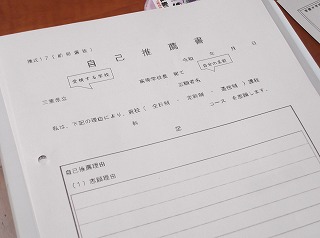 様式17(前期選抜)
自己推薦書
令和 年 月 日
受検する学校
三重県立 高等学校長 宛て
自分の名前
志願者名
私は、下記の理由により、貴校(全日制・定時制・通信制)課程
科 コースを志願します。
記
自己推薦理由
(1)志願理由